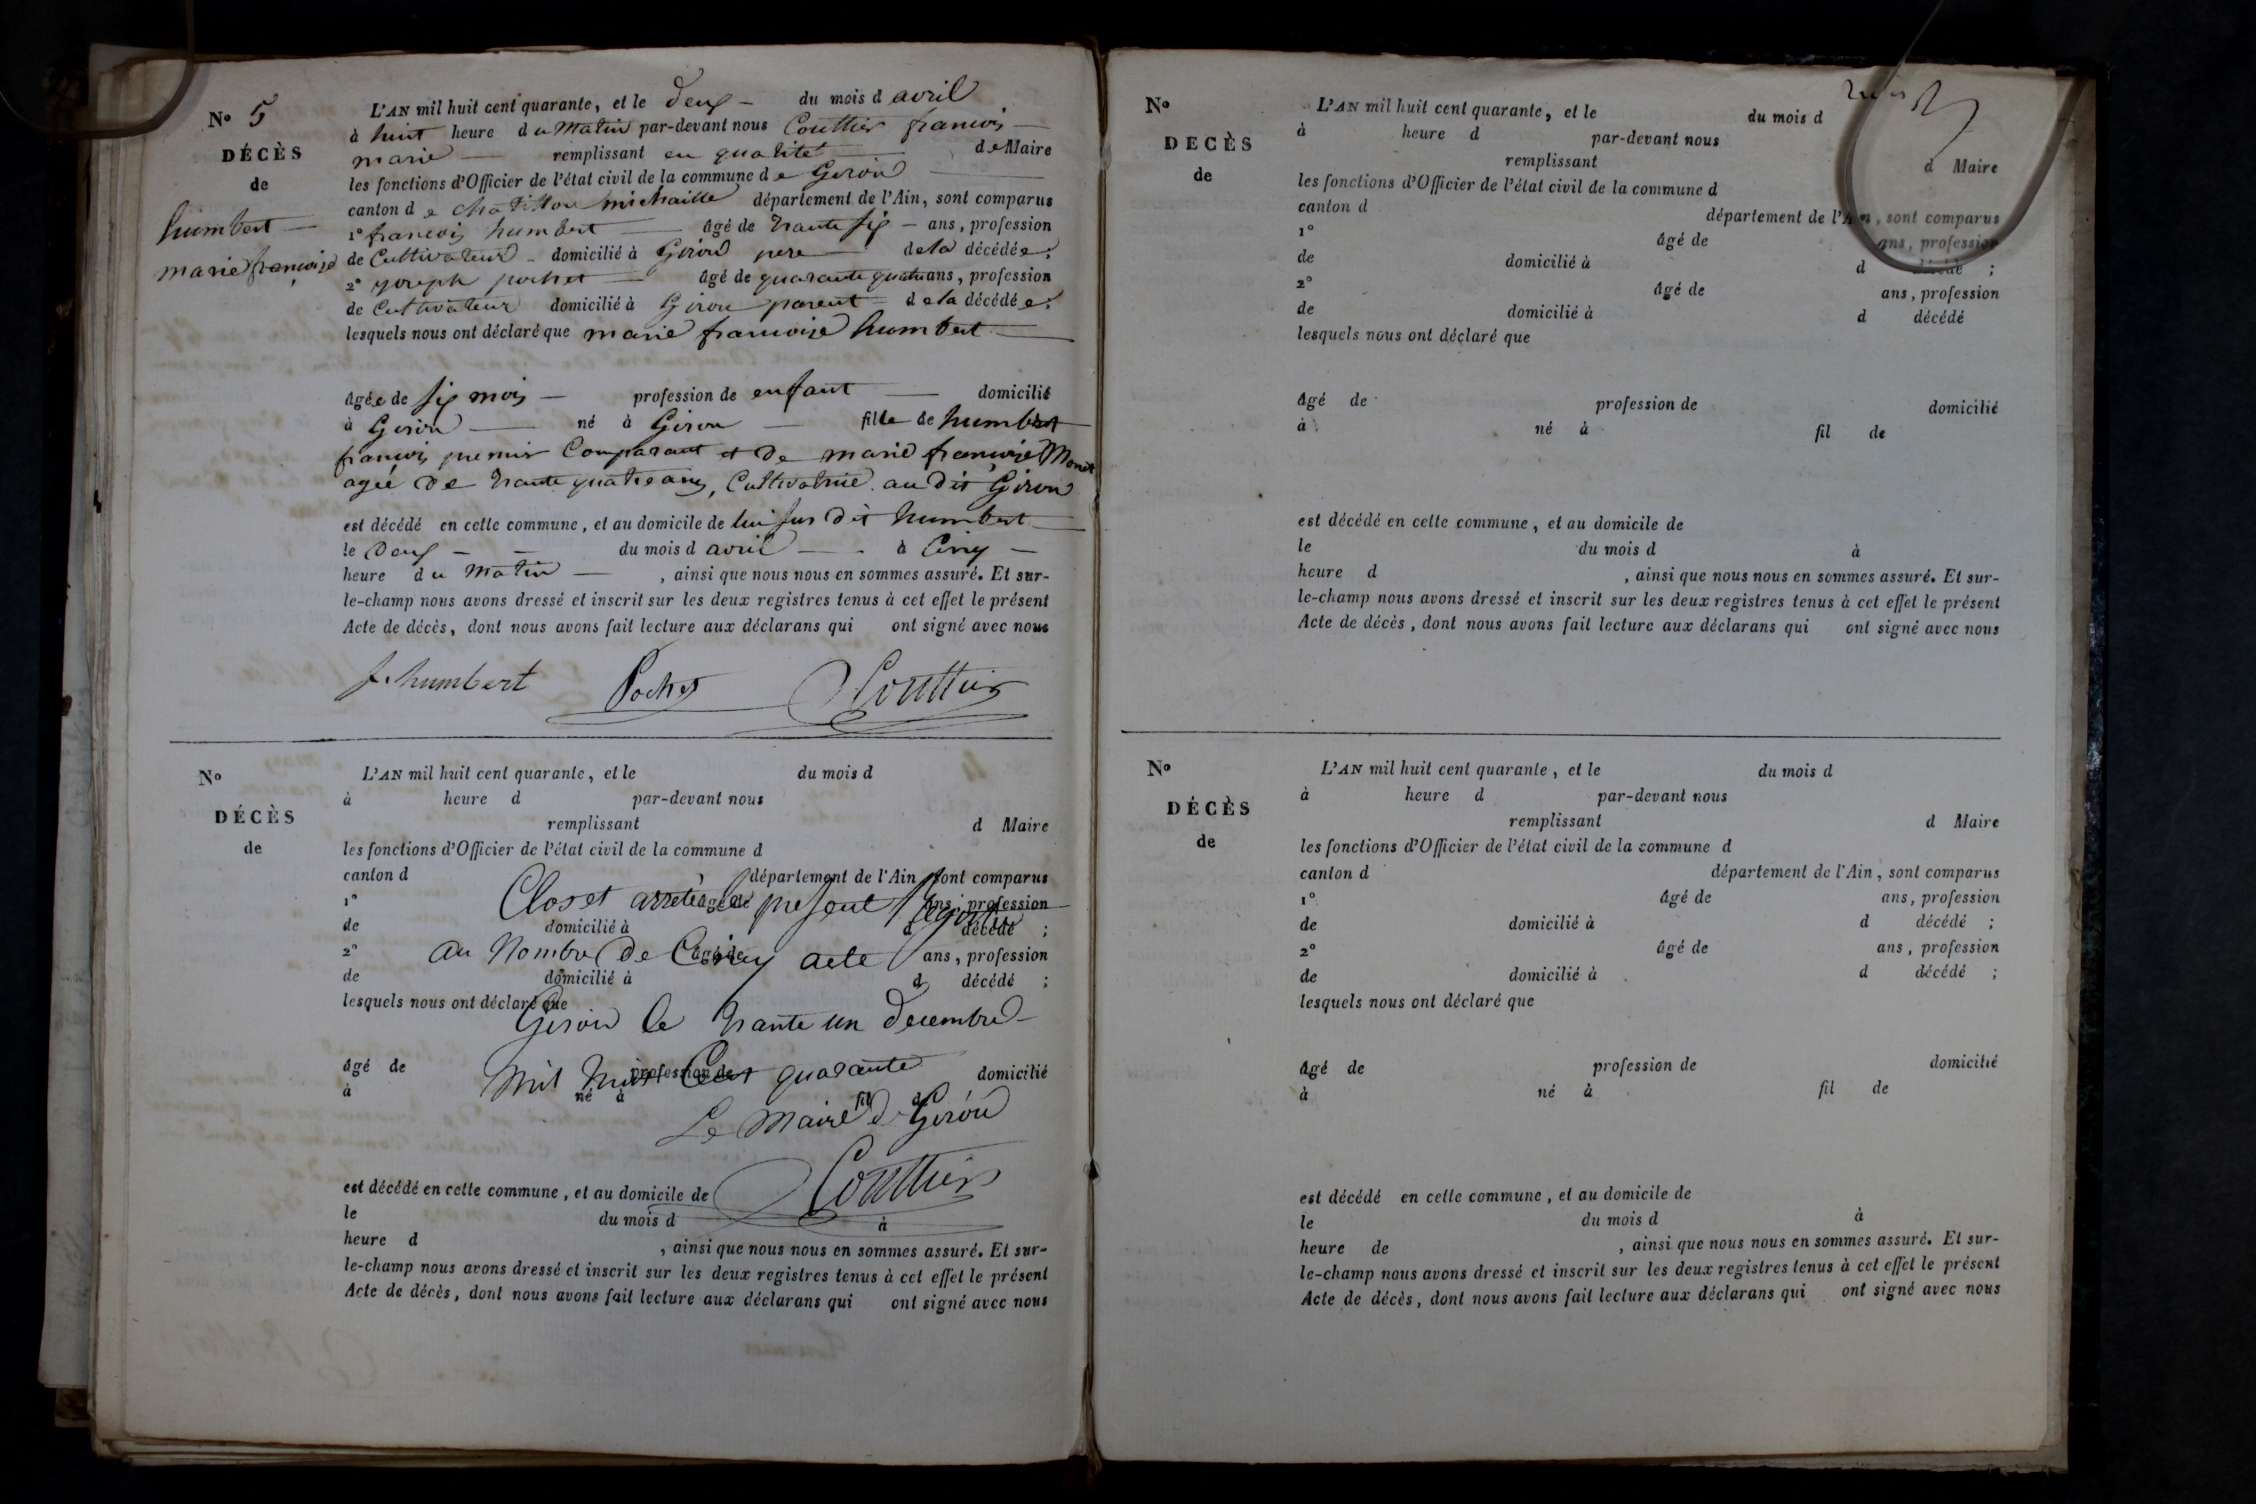 N° 5
DÉCÈS
de
humbert
marie françoise
L'AN mil huit cent quarante, et le deux du mois d avril
à huit heure du Matin par-devant nous Couttier francois
marie remplissant en qualité de Maire
les fonctions d'Officier de l'état civil de la commune de Giron
canton de chatillon michaille département de l'Ain, sont comparus
1° francois humbert âgé de trante six ans, profession
de Cultivateur domicilié à Giron pere de la décédée;
2° joseph pochet âgé de quarante quatre ans, profession
de Cultivateur domicilié à Giron parent de la décédée;
lesquels nous ont déclaré que marie francoise humbert
âgée de six mois profession de enfant domicilié
à Giron né à Giron fille de humbert
francois premier Comparant et de marie francoise Monet
ageé de trante quatre ans, Cultivatrice au dit Giron
est décédé en cette commune, et au domicile de lui sus dit humbert
le deux du mois d avril à Cinq
heure du Matin, ainsi que nous nous en sommes assuré. Et sur-
le-champ nous avons dressé et inscrit sur les deux registres tenus à cet effet le présent
Acte de décès, dont nous avons fait lecture aux déclarans qui ont signé avec nous
f. humbert Pochet Couttier
N°
DÉCÈS
de
L'AN mil huit cent quarante, et le du mois d
à heure d par-devant nous
remplissant d Maire
les fonctions d'Officier de l'état civil de la commune d
canton d département de l'Ain, sont comparus
Clos et arrêté le present
1° âgé de ans, profession
de domicilié à d décédé ;
au Nombre de Cinq acte
2° âgé de ans, profession
de domicilié à d décédé ;
lesquels nous ont déclaré que
Giron le trante un decembre
mil huit Cent quarante
âgé de profession de domicilié
à né à fil de
Le Maire de Giron
Couttier
est décédé en cette commune, et au domicile de
le du mois d à
heure d , ainsi que nous nous en sommes assuré. Et sur-
le-champ nous avons dressé et inscrit sur les deux registres tenus à cet effet le présent
Acte de décès, dont nous avons fait lecture aux déclarans qui ont signé avec nous
N°
DECÈS
de
L'AN mil huit cent quarante, et le du mois d
à heure d par-devant nous
remplissant d Maire
les fonctions d'Officier de l'état civil de la commune d
canton d département de l'Ain, sont comparus
1° âgé de ans, profession
de domicilié à d décédé ;
2° âgé de ans, profession
de domicilié à d décédé
lesquels nous ont déclaré que
âgé de profession de domicilié
à né à fil de
est décédé en cette commune, et au domicile de
le du mois d à
heure d , ainsi que nous nous en sommes assuré. Et sur-
le-champ nous avons dressé et inscrit sur les deux registres tenus à cet effet le présent
Acte de décès, dont nous avons fait lecture aux déclarans qui ont signé avec nous
N°
DÉCÈS
de
L'AN mil huit cent quarante, et le du mois d
à heure d par-devant nous
remplissant d Maire
les fonctions d'Officier de l'état civil de la commune d
canton d département de l'Ain, sont comparus
1° âgé de ans, profession
de domicilié à d décédé ;
2° âgé de ans, profession
de domicilié à d décédé ;
lesquels nous ont déclaré que
âgé de profession de domicilié
à né à fil de
est décédé en cette commune, et au domicile de
le du mois d à
heure de , ainsi que nous nous en sommes assuré. Et sur-
le-champ nous avons dressé et inscrit sur les deux registres tenus à cet effet le présent
Acte de décès, dont nous avons fait lecture aux déclarans qui ont signé avec nous